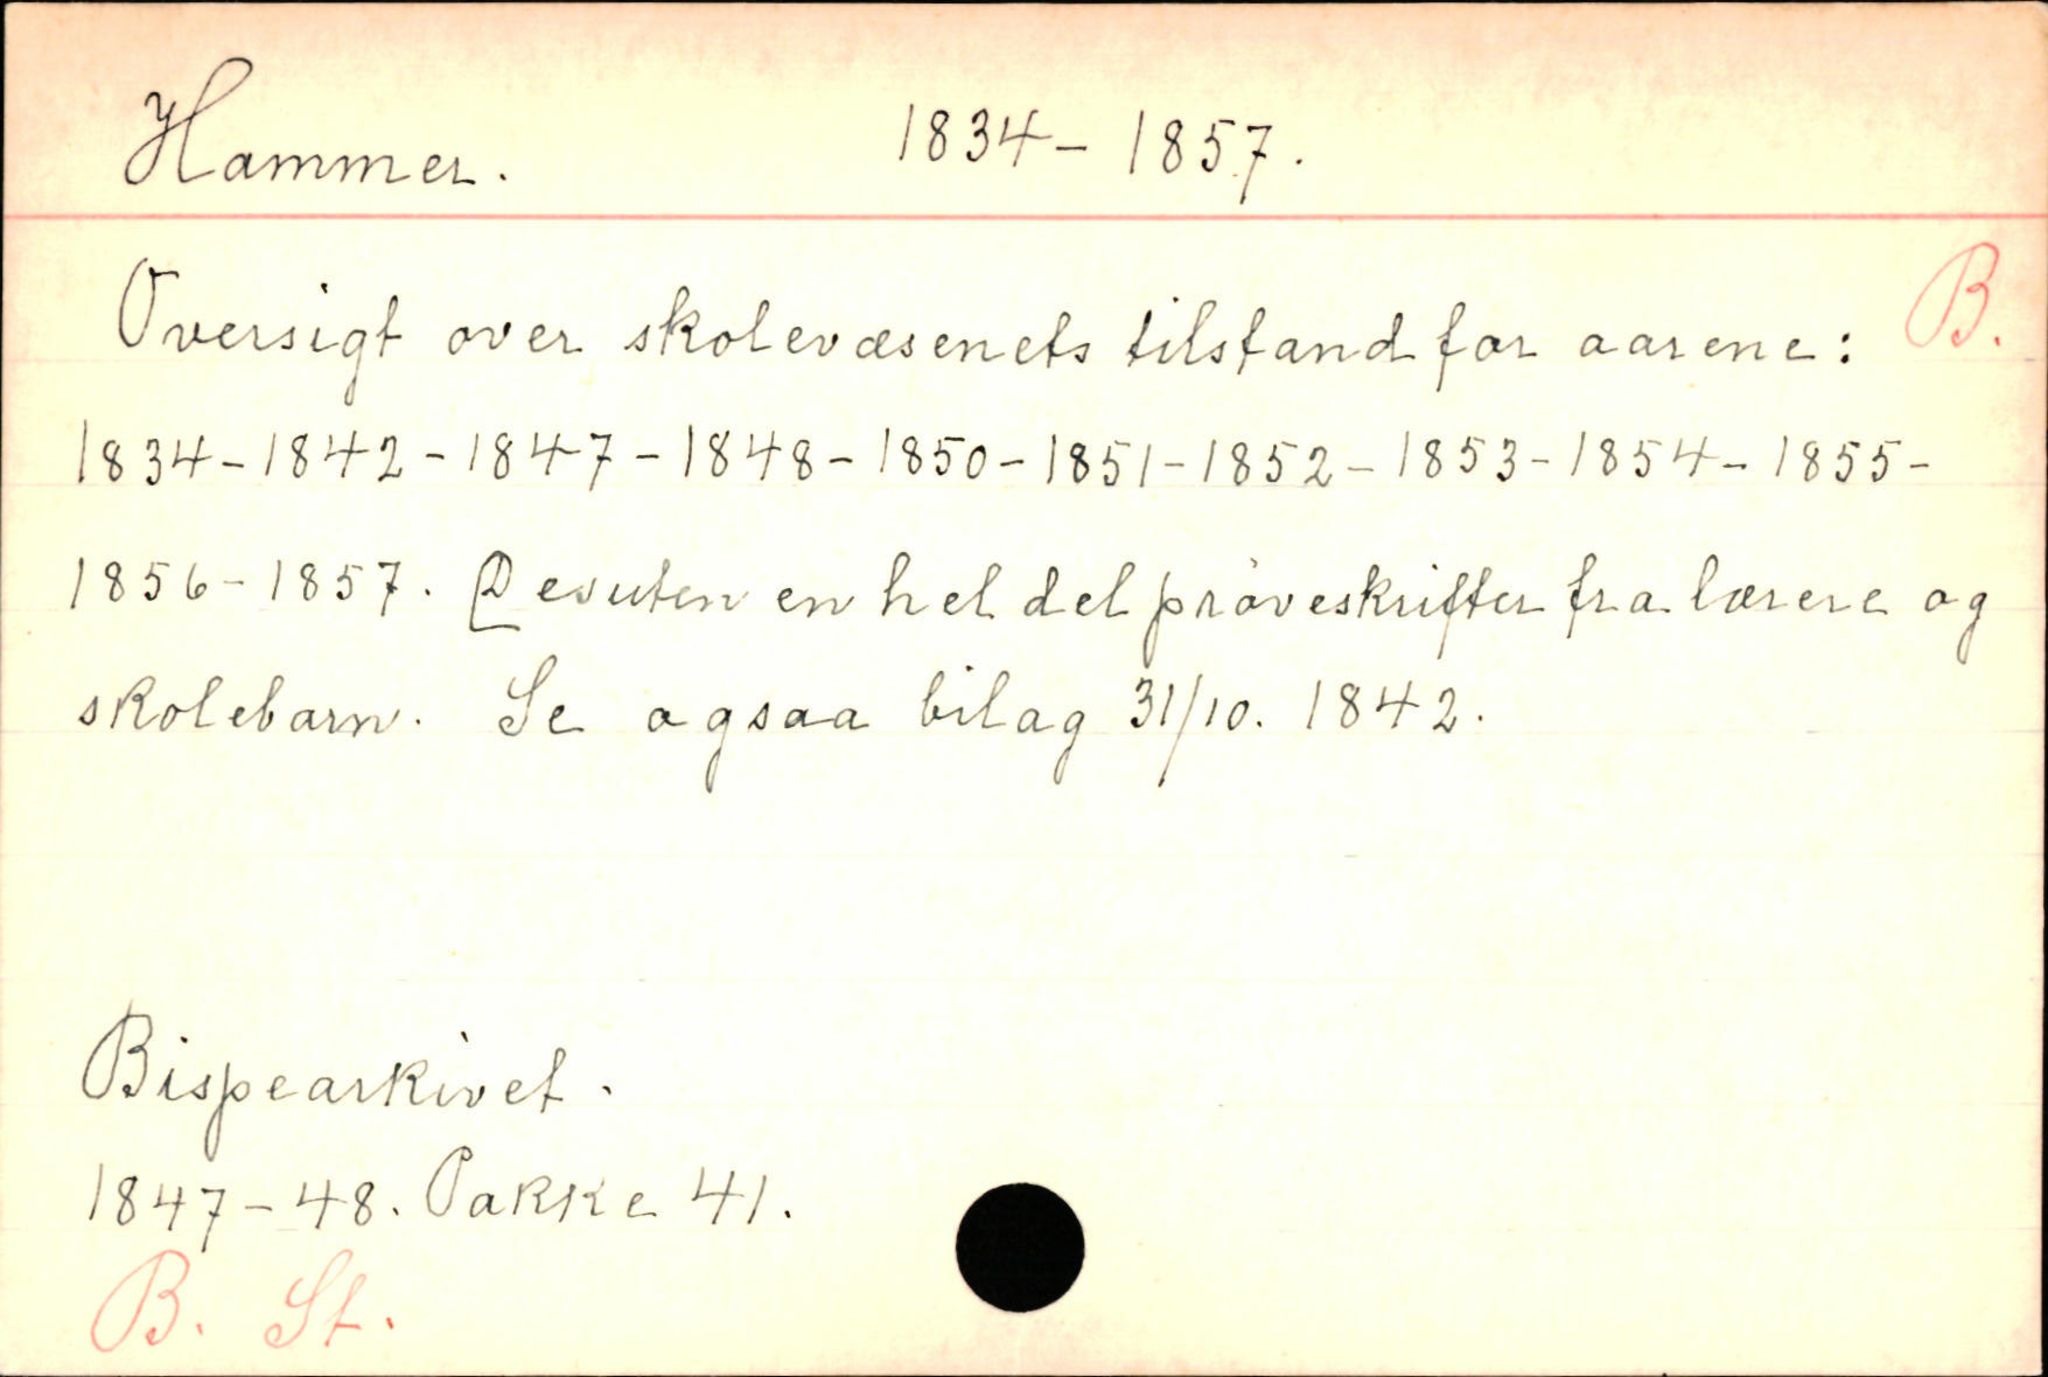 Hammer. 1834-1857.
B.
Oversigt over skolevæsenets tilstand for aarene:
1834-1842-1847-1848-1850-1851-1852-1853-1854-1855-
1856-1857. Desuten en hel del prøveskrifter fra lærere og
skolebarn. Se ogsaa bilag 31/10. 1842.
Bispearkivet.
1847-48. Pakke 41.
B. St.